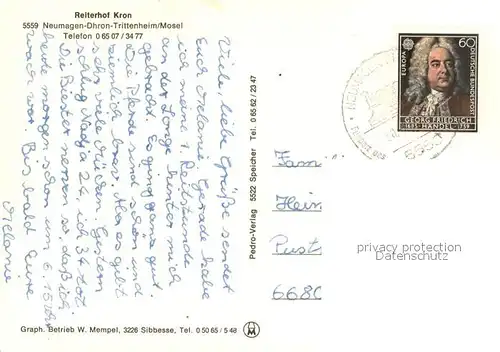 Reiterhof Kron
5559 Neumagen-Dhron-Trittenheim/Mosel
Telefon 0 65 07 / 34 77
Viele liebe Grüße sendet
Euch Melanie. Gerade habe
ich meine 1. Reitstunde
an der Longe hinter mich
gebracht. Es ging ganz gut.
Die Pferde sind schön und
ziemlich brav. Aber es gibt
sehr viele Fliegen. Gestern
schlug Nadja 24, ich 34 tot.
Die Biester nerven so, daß ich
heute morgen schon um 6.15 Uhr
wach war. Bis bald Eure
Melanie
Pedro-Verlag 5522 Speicher Tel. 0 65 62 / 23 47
EUROPA
60
DEUTSCHE BUNDESPOST
GEORG FRIEDRICH
1685 HÄNDEL 1759
Fam
Hein
Pust
6680
privacy protection
Datenschutz
Graph. Betrieb W. Mempel, 3226 Sibbesse, Tel. 0 50 65 / 5 48